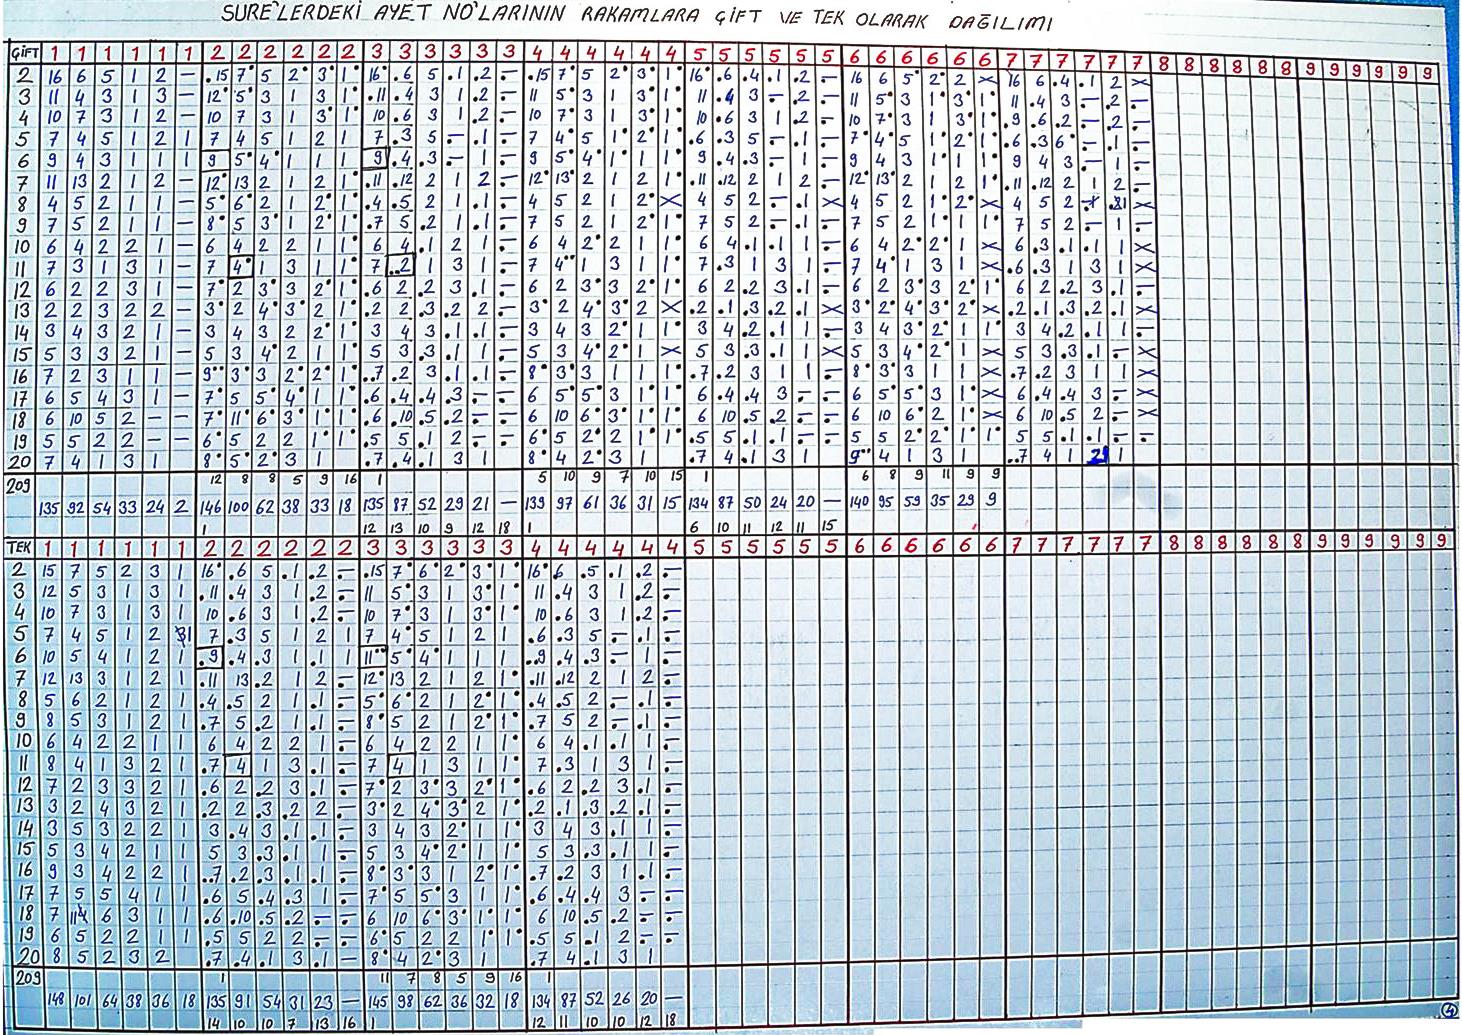 SURE'LERDEKİ AYET NO'LARININ RAKAMLARA ÇİFT VE TEK OLARAK DAĞILIMI
ÇİFT 1 1 1 1 1 1 2 2 2 2 2 2 3 3 3 3 3 3 4 4 4 4 4 4 5 5 5 5 5 5 6 6 6 6 6 6 7 7 7 7 7 7 8 8 8 8 8 8 9 9 9 9 9 9
2 16 6 5 1 2 — 15 7 5 2 3 1 16 6 5 1 2 — 15 7 5 2 3 1 16 6 4 1 2 — 16 6 5 2 2 × 16 6 4 1 2 ×
3 11 4 3 1 3 — 12 5 3 1 3 1 11 4 3 1 2 — 11 5 3 1 3 1 11 4 3 — 2 — 11 5 3 1 3 1 11 4 3 — 2 —
4 10 7 3 1 2 — 10 7 3 1 3 1 10 6 3 1 2 — 10 7 3 1 3 1 10 6 3 1 2 — 10 7 3 1 3 1 9 6 2 — 2 —
5 7 4 5 1 2 1 7 4 5 1 2 1 7 3 5 — 1 — 7 4 5 1 2 1 6 3 5 — 1 — 7 4 5 1 2 1 6 3 6 — 1 —
6 9 4 3 1 1 1 9 5 4 1 1 1 9 4 3 — 1 — 9 5 4 1 1 1 9 4 3 — 1 — 9 4 3 1 1 1 9 4 3 — 1 —
7 11 13 2 1 2 — 12 13 2 1 2 1 11 12 2 1 2 — 12 13 2 1 2 1 11 12 2 1 2 — 12 13 2 1 2 1 11 12 2 1 2 —
8 4 5 2 1 1 — 5 6 2 1 2 1 4 5 2 1 1 — 4 5 2 1 2 × 4 5 2 — 1 × 4 5 2 1 2 × 4 5 2 —
9 7 5 2 1 1 — 8 5 3 1 2 1 7 5 2 1 1 — 7 5 2 1 2 1 7 5 2 — 1 — 7 5 2 1 1 1 7 5 2 — 1 —
10 6 4 2 2 1 — 6 4 2 2 1 1 6 4 1 2 1 — 6 4 2 2 1 1 6 4 1 1 1 — 6 4 2 2 1 × 6 3 1 1 1 ×
11 7 3 1 3 1 — 7 4 1 3 1 1 7 2 1 3 1 — 7 4 1 3 1 1 7 3 1 3 1 — 7 4 1 3 1 × 6 3 1 3 1 ×
12 6 2 2 3 1 — 7 2 3 3 2 1 6 2 2 3 1 — 6 2 3 3 2 1 6 2 2 3 1 — 6 2 3 3 2 1 6 2 2 3 1 —
13 2 2 3 2 2 — 3 2 4 3 2 1 2 2 3 2 2 — 3 2 4 3 2 × 2 1 3 2 1 × 3 2 4 3 2 × 2 1 3 2 1 —
14 3 4 3 2 1 — 3 4 3 2 2 1 3 4 3 1 1 — 3 4 3 2 1 1 3 4 2 1 1 — 3 4 3 2 1 1 3 4 2 1 1 —
15 5 3 3 2 1 — 5 3 4 2 1 1 5 3 3 1 1 — 5 3 4 2 1 × 5 3 3 1 1 × 5 3 4 2 1 × 5 3 3 1 — ×
16 7 2 3 1 1 — 9 3 3 2 2 1 7 2 3 1 1 — 8 3 3 1 1 1 7 2 3 1 1 — 8 3 3 1 1 × 7 2 3 1 1 ×
17 6 5 4 3 1 — 7 5 5 4 1 1 6 4 4 3 — — 6 5 5 3 1 1 6 4 4 3 — — 6 5 5 3 1 × 6 4 4 3 — ×
18 6 10 5 2 — — 7 11 6 3 1 1 6 10 5 2 — — 6 10 6 3 1 1 6 10 5 2 — — 6 10 6 2 1 × 6 10 5 2 — ×
19 5 5 2 2 — — 6 5 2 2 1 1 5 5 1 2 — — 6 5 2 2 1 1 5 5 1 1 — — 5 5 2 2 1 1 5 5 1 1 — —
20 7 4 1 3 1 8 5 2 3 1 7 4 1 3 1 8 4 2 3 1 7 4 1 3 1 9 4 1 3 1 7 4 1 1
12 8 8 5 9 16 1 5 10 9 7 10 15 1 6 8 9 11 9 9
209 135 92 54 33 24 2 146 100 62 38 33 18 135 87 52 29 21 — 139 97 61 36 31 15 134 87 50 24 20 — 140 95 59 35 29 9
1 12 13 10 9 12 18 1 6 10 11 12 11 15
TEK 1 1 1 1 1 1 2 2 2 2 2 2 3 3 3 3 3 3 4 4 4 4 4 4 5 5 5 5 5 5 6 6 6 6 6 6 7 7 7 7 7 7 8 8 8 8 8 8 9 9 9 9 9 9
2 15 7 5 2 3 1 16 6 5 1 2 — 15 7 6 2 3 1 16 6 5 1 2 —
3 12 5 3 1 3 1 11 4 3 1 2 — 11 5 3 1 3 1 11 4 3 1 2 —
4 10 7 3 1 3 1 10 6 3 1 2 — 10 7 3 1 3 1 10 6 3 1 2 —
5 7 4 5 1 2 7 3 5 1 2 1 7 4 5 1 2 1 6 3 5 — 1 —
6 10 5 4 1 2 1 9 4 3 1 1 1 11 5 4 1 1 1 9 4 3 — 1 —
7 12 13 3 1 2 1 11 13 2 1 2 — 12 13 2 1 2 1 11 12 2 1 2 —
8 5 6 2 1 2 1 4 5 2 1 1 — 5 6 2 1 2 1 4 5 2 — 1 —
9 8 5 3 1 2 1 7 5 2 1 1 — 8 5 2 1 2 1 7 5 2 — 1 —
10 6 4 2 2 1 1 6 4 2 2 1 — 6 4 2 2 1 1 6 4 1 1 1 —
11 8 4 1 3 2 1 7 4 1 3 1 — 7 4 1 3 1 1 7 3 1 3 1 —
12 7 2 3 3 2 1 6 2 2 3 1 — 7 2 3 3 2 1 6 2 2 3 1 —
13 3 2 4 3 2 1 2 2 3 2 2 — 3 2 4 3 2 1 2 1 3 2 1 —
14 3 5 3 2 2 1 3 4 3 1 1 — 3 4 3 2 1 1 3 4 3 1 1 —
15 5 3 4 2 1 1 5 3 3 1 1 — 5 3 4 2 1 1 5 3 3 1 1 —
16 9 3 4 2 2 1 7 2 3 1 1 — 8 3 3 1 2 1 7 2 3 1 1 —
17 7 5 5 4 1 1 6 5 4 3 1 — 7 5 5 3 1 1 6 4 4 3 — —
18 7 6 3 1 1 6 10 5 2 — — 6 10 6 3 1 1 6 10 5 2 — —
19 6 5 2 2 1 1 5 5 2 2 — — 6 5 2 2 1 1 5 5 1 2 — —
20 8 5 2 3 2 7 4 1 3 1 — 8 4 2 3 1 7 4 1 3 1
1 11 7 8 5 9 16 1
209 148 101 64 38 36 18 135 91 54 31 23 — 145 98 62 36 32 18 134 87 52 26 20 —
14 10 10 7 13 16 1 12 11 10 10 12 18
4